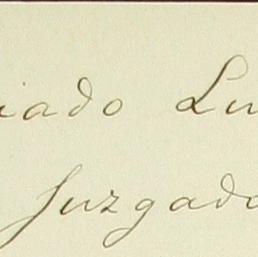 iado Lu
Juzgado